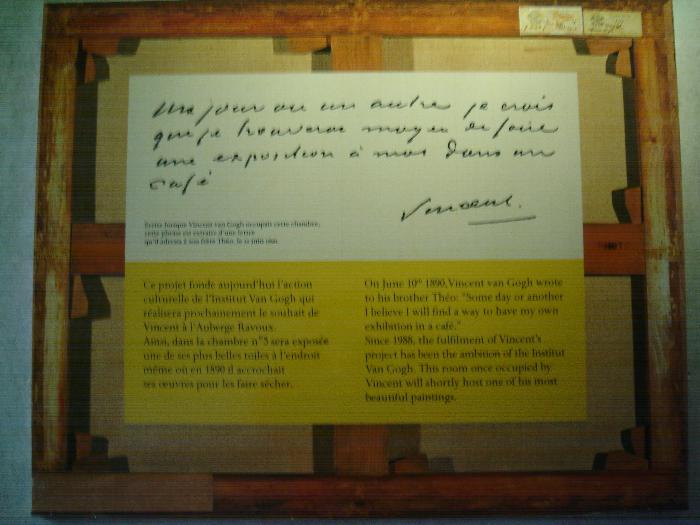 Un jour ou un autre je crois
que je trouverai moyen de faire
une exposition à moi dans un
café
Vincent.
Écrite lorsque Vincent van Gogh occupait cette chambre,
cette phrase est extraite d'une lettre
qu'il adressa à son frère Théo, le 10 juin 1890.
Ce projet fonde aujourd'hui l'action
culturelle de l'Institut Van Gogh qui
réalisera prochainement le souhait de
Vincent à l'Auberge Ravoux.
Ainsi, dans la chambre n°5 sera exposée
une de ses plus belles toiles à l'endroit
même où en 1890 il accrochait
ses œuvres pour les faire sécher.
On June 10th 1890, Vincent van Gogh wrote
to his brother Théo: "Some day or another
I believe I will find a way to have my own
exhibition in a café."
Since 1988, the fulfilment of Vincent's
project has been the ambition of the Institut
Van Gogh. This room once occupied by
Vincent will shortly host one of his most
beautiful paintings.